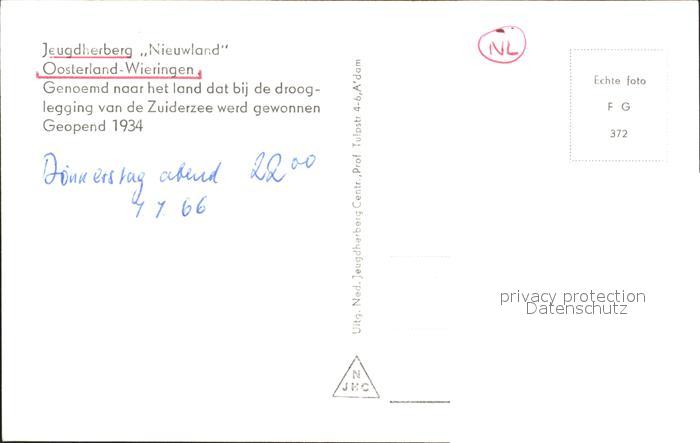 Jeugdherberg „Nieuwland"
Oosterland-Wieringen
Genoemd naar het land dat bij de droog-
legging van de Zuiderzee werd gewonnen
Geopend 1934
Donnerstag abend 22 00
7 7 66
Uitg. Ned. Jeugdherberg Centr., Prof. Tulpstr 4-6, A'dam
N
JHC
NL
Echte foto
F G
372
privacy protection
Datenschutz